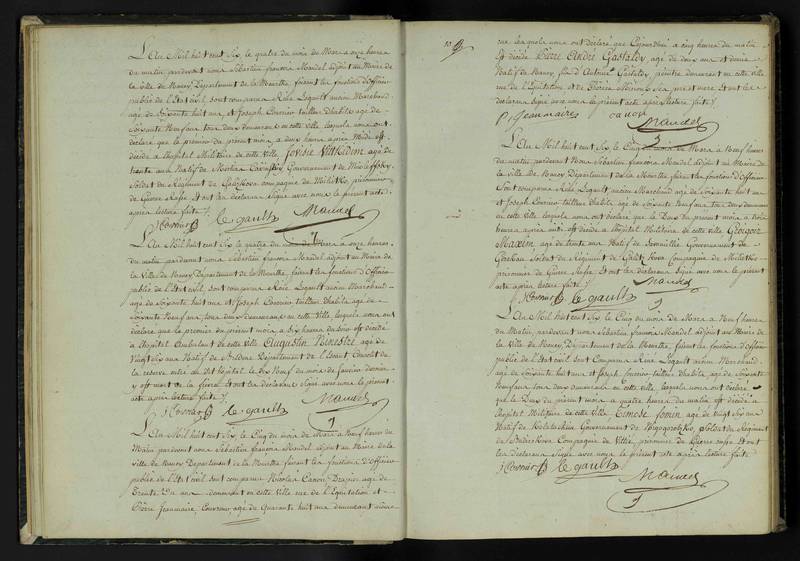 L'An Mil huit cent Six, le quatre du mois de Mars a onze heures
du matin pardevant nous Sébastien françois Mandel adjoint au Maire de
la Ville de Nancy Département de la Meurthe, faisant les fonctions d'officier
public de l'Etat civil, sont comparus René Legault ancien Marchand
agé de Soixante huit ans, et Joseph Cornier tailleur d'habits agé de
Soixante Neuf ans, tous deux demeurans en cette ville, lesquels nous ont
déclaré que le premier du présent mois a deux heures après Midi est
décédé a l'hopital Militaire de cette ville, agé de
trente ans Natif de Gouvernement de
Soldat au Régiment de compagnie de prisonnier
de Guerre Russe. Et ont les déclarans Signé avec nous le présent acte
après lecture faite.
J Cornier le gault Mandel
L'An Mil huit cent Six, le quatre du mois de Mars a onze heures
du matin pardevant nous Sébastien françois Mandel adjoint au Maire de
la Ville de Nancy Département de la Meurthe, faisant les fonctions d'officier
public de l'Etat civil, sont comparus René Legault ancien Marchand
agé de Soixante huit ans et Joseph Cornier tailleur d'habits agé de
Soixante Neuf ans, tous deux demeurans en cette Ville, lesquels nous ont
déclaré que le premier du présent mois, a dix heures du soir est décédé
a l'hopital Ambulant de cette ville Augustin agé de
Vingt Six ans Natif de Département de Conscrit de
la reserve entré au dit hopital le dix Neuf du mois de janvier dernier
y est mort de la fievre. Et ont les déclarans Signé avec nous le présent
acte après lecture faite.
J Cornier le gault Mandel
L'An Mil huit cent Six, le Cinq du mois de Mars a Neuf heures du
Matin pardevant nous Sébastien françois Mandel adjoint au Maire de la
ville de Nancy Département de la Meurthe faisant les fonctions d'officier
public de l'Etat civil, sont comparus Nicolas Canon agé de
Trente Un ans demeurant en cette Ville rue de l'Equitation et
Pierre Jeanmaire agé de Quarante huit ans demeurant même
rue lesquels nous ont déclaré que Cejourd'hui a cinq heures du matin
est décédé Pierre André Gastaldy, agé de deux ans et demi
Natif de Nancy, fils d'Antoine Gastaldy, peintre demeurant en cette ville
rue de l'Equitation, et de ses père et mere. Et ont les
déclarans Signé avec nous le présent acte après lecture faite.
P. Jeanmaires canon Mandel
L'An Mil huit cent Six, le Cinq du mois de Mars, a Neuf heures
du matin pardevant nous Sébastien françois Mandel adjoint au Maire de
la Ville de Nancy Département de la Meurthe, faisant les fonctions d'officier
public de l'Etat civil
Sont comparus René Legault ancien Marchand agé de Soixante huit ans
et Joseph Cornier tailleur d'habits, agé de Soixante Neuf ans tous deux demeurans
en cette ville, lesquels nous ont déclaré que le Deux du présent mois a trois
heures après midi est décédé a l'hopital Militaire de cette ville Gregoir
Maxim, agé de trente ans Natif de Gouvernement de
Soldat au Régiment de Compagnie de
prisonnier de Guerre Russe. Et ont les déclarans Signé avec nous le présent
acte après lecture faite.
J Cornier le gault Mandel
L'An Mil huit cent Six, le Cinq du mois de Mars a Neuf heures
du Matin, pardevant nous Sébastien françois Mandel adjoint au Maire de
la ville de Nancy Département de la Meurthe, faisant les fonctions d'officier
public de l'Etat civil, sont Comparus René Legault ancien Marchand,
agé de Soixante huit ans et Joseph Cornier tailleur d'habits, agé de Soixante
Neuf ans tous deux demeurans en cette ville, lesquels nous ont déclaré
que le Deux du présent mois, a quatre heures du matin est décédé a
l'hopital Militaire de cette ville fomin, agé de Vingt Six ans
Natif de Gouvernement de Soldat au Régiment
de Compagnie de prisonnier de Guerre russe. Et ont
les déclarans Signé avec nous le présent acte après lecture faite.
J Cornier le gault Mandel